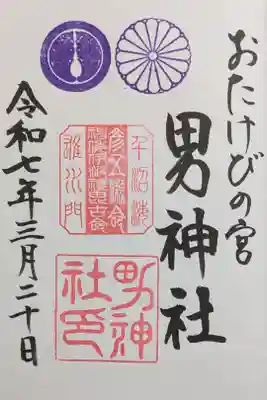 おたけびの宮
男神社
男神社印
令和七年三月二十日